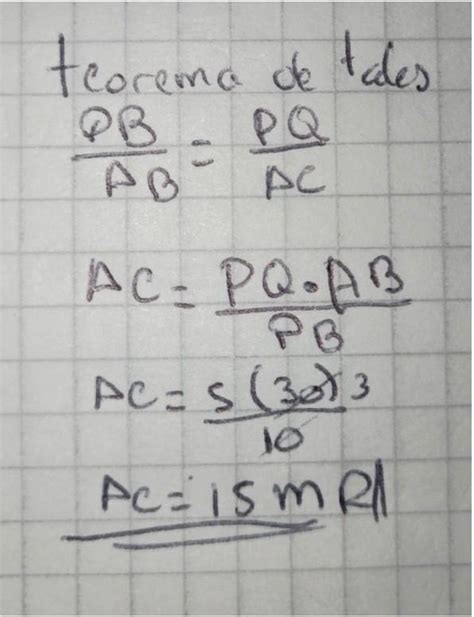 teorema de tales
PB/AB = PQ/AC
AC = PQ·AB/PB
AC = 5(30)3/10
AC = 15 m R//